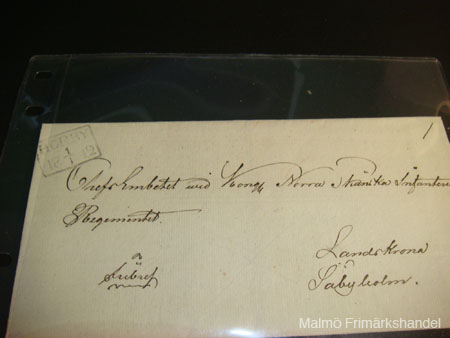 HÖRBY
1
1
Chefs Embetet wid Kongl Norra Skånska Infanteri
Regementet.
Landskrona
Säbyholm.
Malmö Frimärkshandel